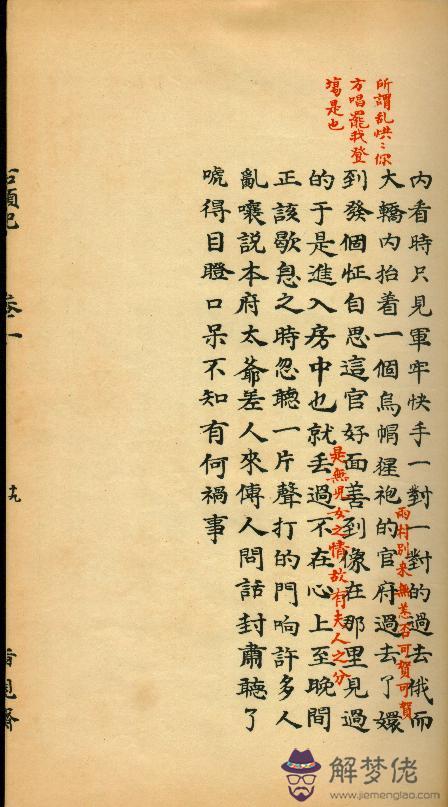 所謂乱烘〻你
方唱罷我登
塲是也
内看時只見軍牢快手一對一對的過去俄而
大轎内抬着一個烏帽猩袍的官府過去了嬛
雨村别來無恙否可賀可賀
到發個怔自思這官好面善到像在那里見過
的于是進入房中也就丢過不在心上至晚間
是無兒女之情故有夫人之分
正該歇息之時忽聽一片聲打的門响許多人
亂嚷説本府太爺差人來傳人問話封肅聽了
唬得目瞪口呆不知有何禍事
石頭記 卷一
十九
脂硯齋
解梦佬
www.jiemenglao.com